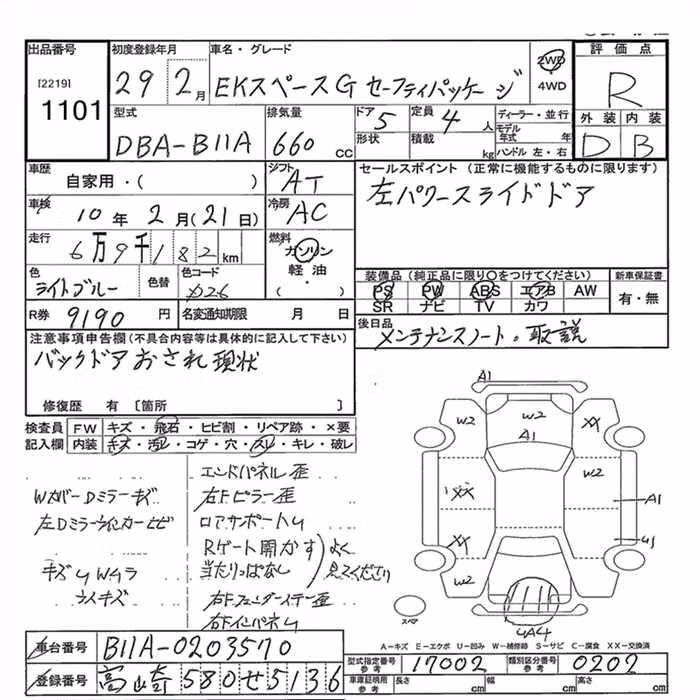 出品番号
[2219]
1101
初度登録年月
29 2月
車名・グレード
EKスペースG セーフティパッケージ
2WD
4WD
評価点
R
外装 内装
D B
型式
DBA-B11A
排気量
660 cc
ドア
5
形状
定員
4 人
積載
kg
ディーラー・並行
モデル年式 年
ハンドル 左・右
車歴
自家用・( )
シフト
AT
セールスポイント (正常に機能するものに限ります)
左パワースライドドア
車検
10年 2月(21日)
冷房
AC
走行
6万9千182 km
燃料
ガソリン
軽油
・( )
色
ライトブルー
色替
色コード
X26
装備品(純正品に限り○をつけてください)
PS PW ABS エアB AW
SR ナビ TV カワ
新車保証書
有・無
R券 9190 円
名変通知期限 月 日
後日品
メンテナンスノート・取説
注意事項申告欄(不具合内容等は具体的に記入して下さい)
バックドアおされ現状
修復歴 有 〔箇所 〕
検査員記入欄
FW キズ・飛石・ヒビ割・リペア跡・×要
内装 キズ・汚レ・コゲ・穴・スレ・キレ・破レ
WカバーDミラーキズ
左Dミラーウインカーヒビ
エンドパネル歪
右Fピラー歪
ロアサポートU
Rゲート開かず
当たりっぱなし
よく
見てください
右Fフェンダーステー歪
右FインパネU
A1
W2
W2
XX
A1
XX
W2
A1
XX
U1
W2
スペア
UA4
A-キズ E-エクボ U-凹み W-補修跡 S-サビ C-腐食 XX-交換済
車台番号
B11A-0203570
登録番号
高崎 580 せ 5136
型式指定番号
参考
17002
類別区分番号
参考
0202
車庫証明用
参考
長さ cm
幅 cm
高さ cm